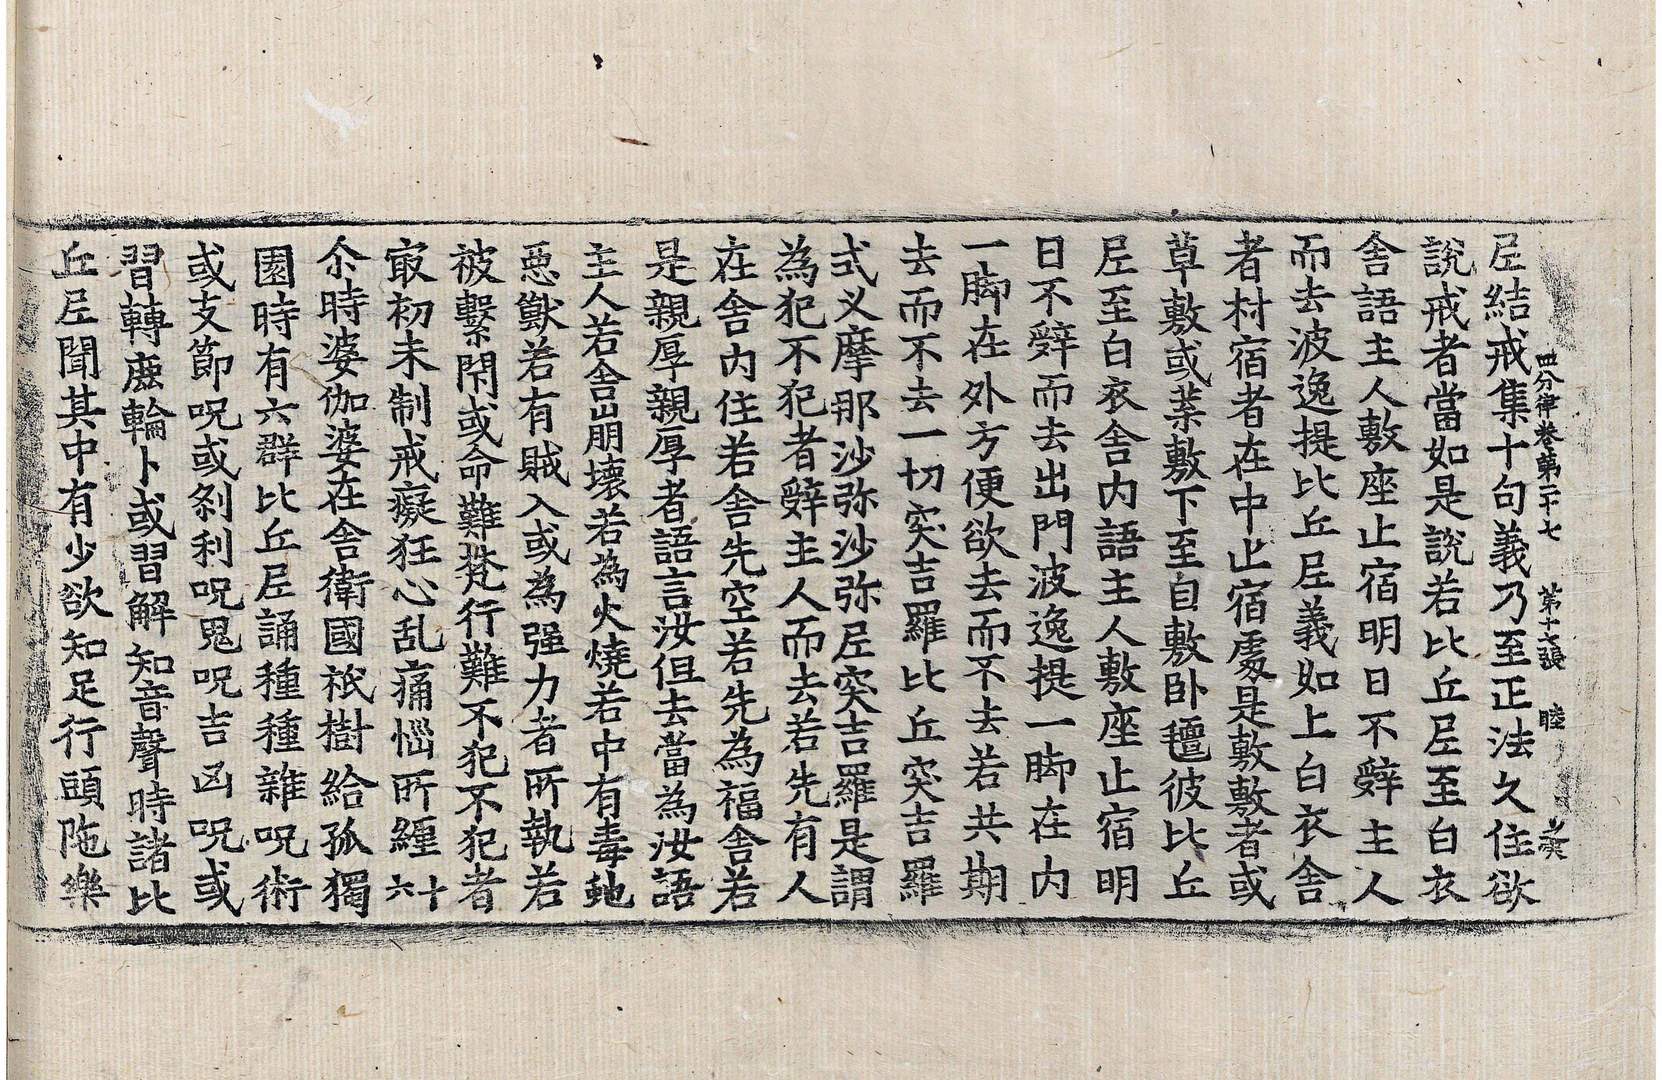 四分律卷第二十七 第十六張 睦
尼結戒集十句義乃至正法久住欲
說戒者當如是說若比丘尼至白衣
舍語主人敷座止宿明日不辤主人
而去波逸提比丘尼義如上白衣舍
者村宿者在中止宿處是敷敷者或
草敷或葉敷下至自敷卧氊彼比丘
尼至白衣舍內語主人敷座止宿明
日不辤而去出門波逸提一脚在內
一脚在外方便欲去而不去若共期
去而不去一切突吉羅比丘突吉羅
式叉摩那沙弥沙弥尼突吉羅是謂
為犯不犯者辤主人而去若先有人
在舍內住若舍先空若先為福舍若
是親厚親厚者語言汝但去當為汝語
主人若舍崩壞若為火燒若中有毒虵
惡獸若有賊入或為强力者所執若
被繫閇或命難梵行難不犯不犯者
㝡初未制戒癡狂心乱痛惱所纏 十六
尒時婆伽婆在舍衛國祇樹給孤獨
園時有六群比丘尼誦種種雜呪術
或支節呪或刹利呪鬼呪吉凶呪或
習轉鹿輪卜或習解知音聲時諸比
丘尼聞其中有少欲知足行頭陁樂